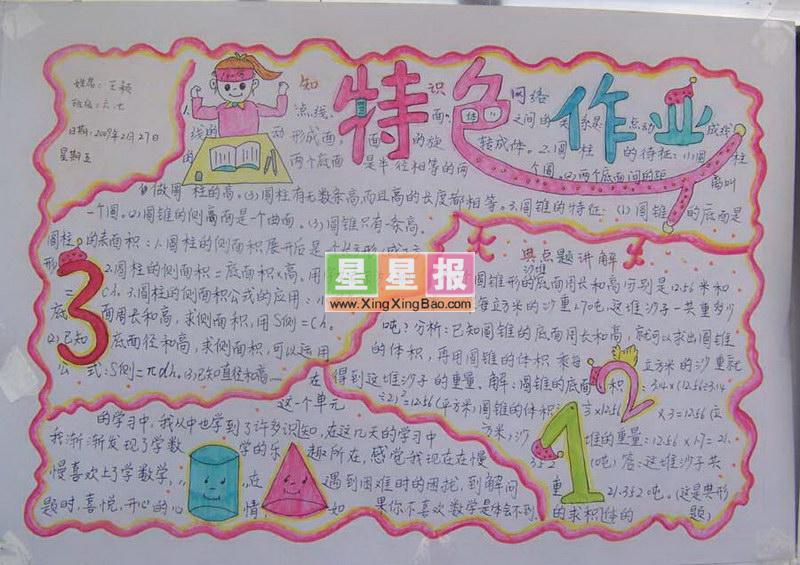 姓名：王颖
班级：六.七
日期：2009年2月27日
星期五
特色作业
知识网络
1.点、线、面、体之间的关系是：点动成线
线的动形成面，面的旋转成体。2.圆柱的特征：(1)圆柱
的两个底面是半径相等的两个圆。(2)两个底面间的距离叫
做圆柱的高。(3)圆柱有无数条高,而且高的长度都相等。3.圆锥的特征：(1)圆锥的底面是
一个圆。(2)圆锥的侧面是一个曲面。(3)圆锥只有一条高。
圆柱的表面积：1.圆柱的侧面积展开后是一个长方形
形2.圆柱的侧面积=底面积×高。用
=Ch.3.圆柱的侧面积公式的应用：
底面周长和高，求侧面积，用S侧=Ch。
(2)已知底面径和高，求侧面积，可以运用
公式:S侧=πdh。(3)已知直径和高
3
星星报
www.XingXingBao.com
典点题讲解
圆锥形的底面周长和高分别是12.56米和
每立方米的沙重1.70吨,这堆沙子一共重多少
吨？分析：已知圆锥的底面周长和高，就可以求出圆锥
的体积，再用圆锥的体积乘每立方米的沙重就
得到这堆沙子的重量。解：圆锥的底面积：3.14×(12.56÷3.14
÷2)²=12.56(平方米)圆锥的体积：×12.56×3=12.56(立
方米)沙堆的重量：12.56×1.7=21.
352(吨)答：这堆沙子共
重21.352吨。(这是典形
的求积体的题)
2
1
在这一个单元
的学习中，我从中也学到了许多识知，在这几天的学习中
我渐渐发现了学数学的乐趣所在，感觉我现在在慢
慢喜欢上了学数学，在遇到困难时的困扰，到解问
题时，喜悦，开心的心情，如果你不喜欢数学是体会不到